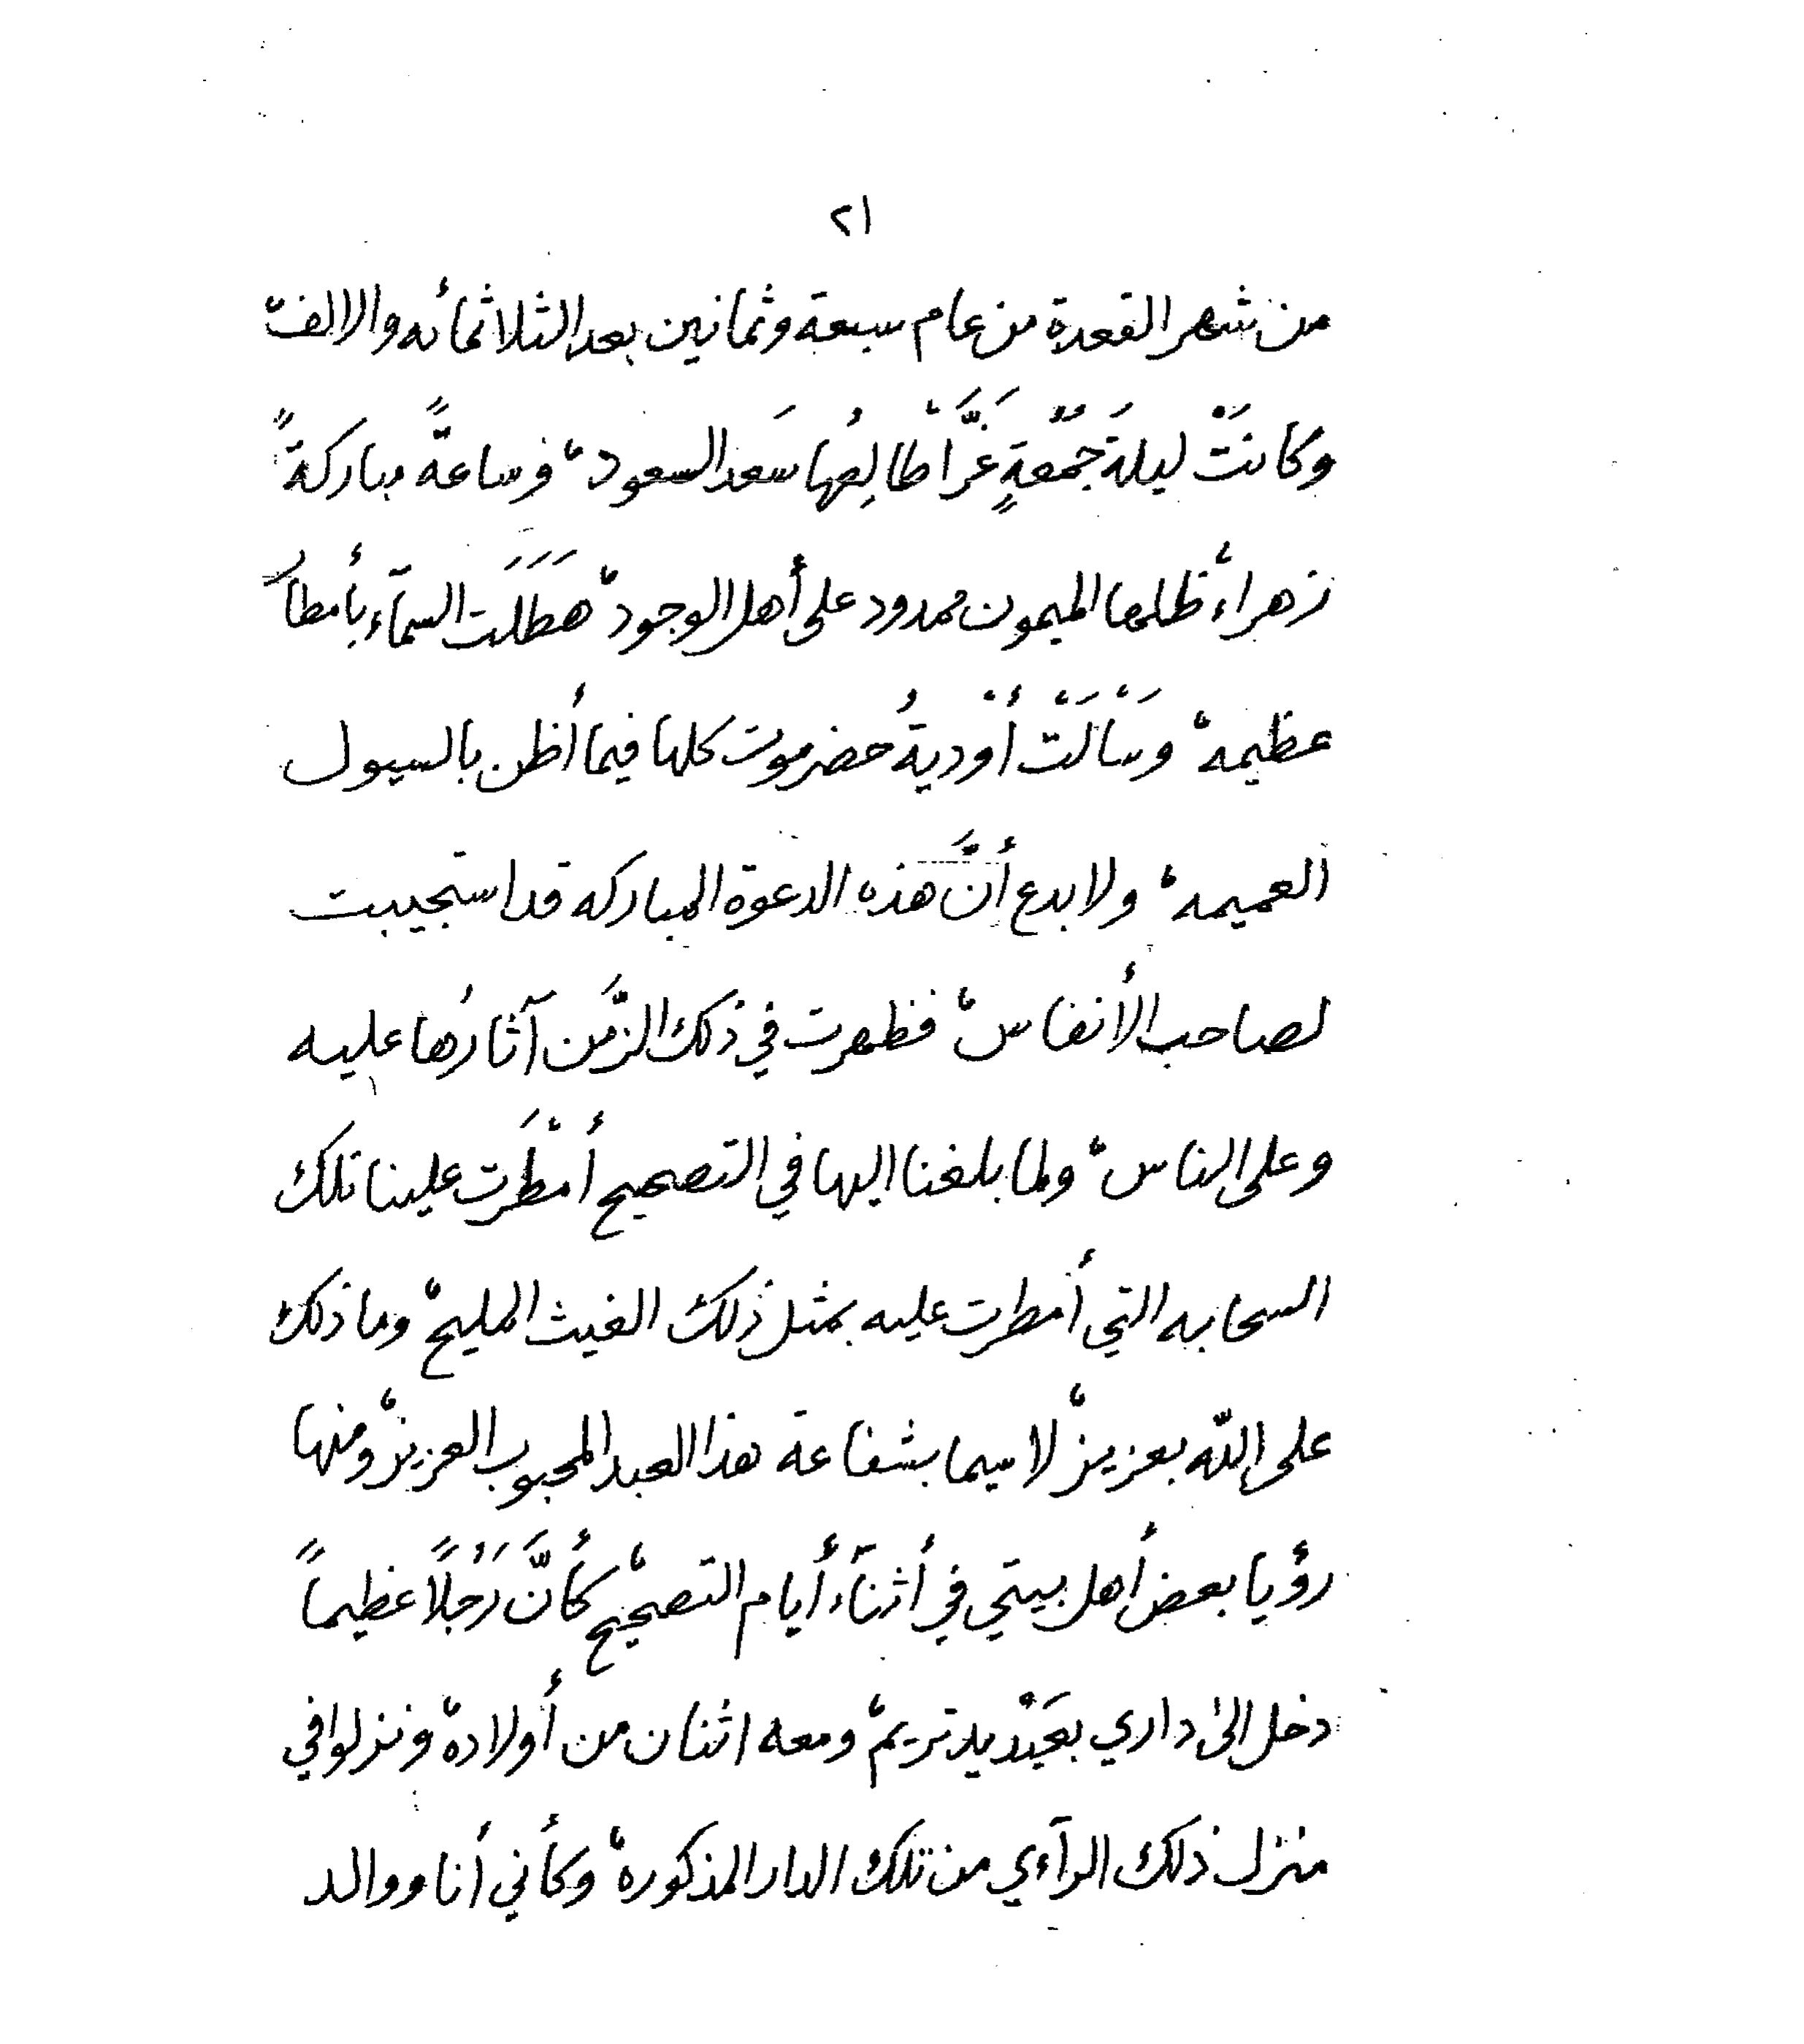 ٢١
من شهر القعدة من عام سبعة وثمانين بعد الثلاثمائه والالف،
وكانَتْ ليلةَ جُمْعةٍ غَرَّا، طالِعُها سَعد السعود، وساعةً مباركةً
زهراء، ظلها الميمون ممدود على أهل الوجود، هَطَلَت السمآء بأمطارٍ
عظيمه، وسَالَتْ أوْديةُ حضرموت كلها فيما أظن بالسيول
العميمه، ولا بدع أنَّ هذه الدعوة المباركه قد استجيبت
لصاحب الأنفاس، فظهرت في ذلك الزَّمن آثارُها عليه
وعلى الناس، ولما بلغنا اليها في التصحيح أمْطَرت علينا تلك
السحابه التي أمطرت عليه بمثل ذلك الغيث المليح، وما ذلك
على الله بعزيز، لا سيما بشفاعة هذا العبد المحبوب العزيز، ومنها
رؤيا بعض أهل بيتي في أثنآء أيام التصحيح، كأنَّ رَجُلاً عظيماً
دخل الى داري بعَيْديد تريم، ومعه اثنان من أولاده، ونزلوا في
منزل ذلك الرآءي من تلك الدار المذكوره، وكأني أنا ووالد